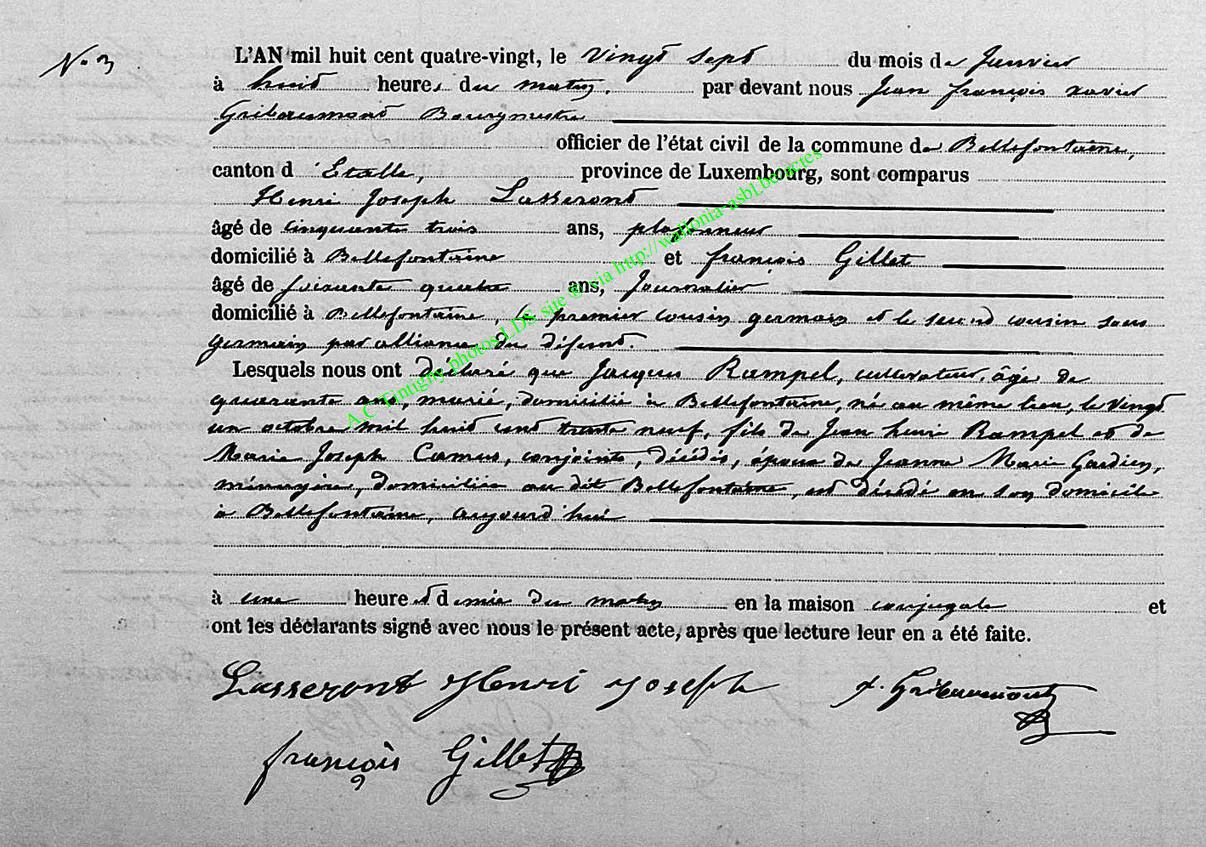 N° 3
L'AN mil huit cent quatre-vingt, le vingt sept du mois de Janvier
à huit heures du matin. par devant nous Jean françois xavier
Gribaumont Bourgmestre
officier de l'état civil de la commune de Bellefontaine,
canton d'Etalle, province de Luxembourg, sont comparus
Henri Joseph Lasseront
âgé de cinquante trois ans, plafonneur
domicilié à Bellefontaine et françois Gillet
âgé de soixante quatre ans, Journalier
domicilié à Bellefontaine, le premier cousin germain et le second cousin sous
germain par alliance du défunt.
Lesquels nous ont déclaré que Jacques Rampel, cultivateur, âgé de
quarante ans, marié, domicilié à Bellefontaine, né au même lieu, le vingt
un octobre mil huit cent trente neuf, fils de Jean henri Rampel et de
Marie Joseph Camus, conjoints, décédés, époux de Jeanne Marie Gardien,
ménagère, domiciliée au dit Bellefontaine, est décédé en son domicile
à Bellefontaine, aujourd'hui
à une heure et demie du matin en la maison conjugale et
ont les déclarants signé avec nous le présent acte, après que lecture leur en a été faite.
Lasseront Henri Joseph x. Gribaumont
françois Gillet
A.C Tintigny photos LDS site © via http://wallonia-asbl.be/actes